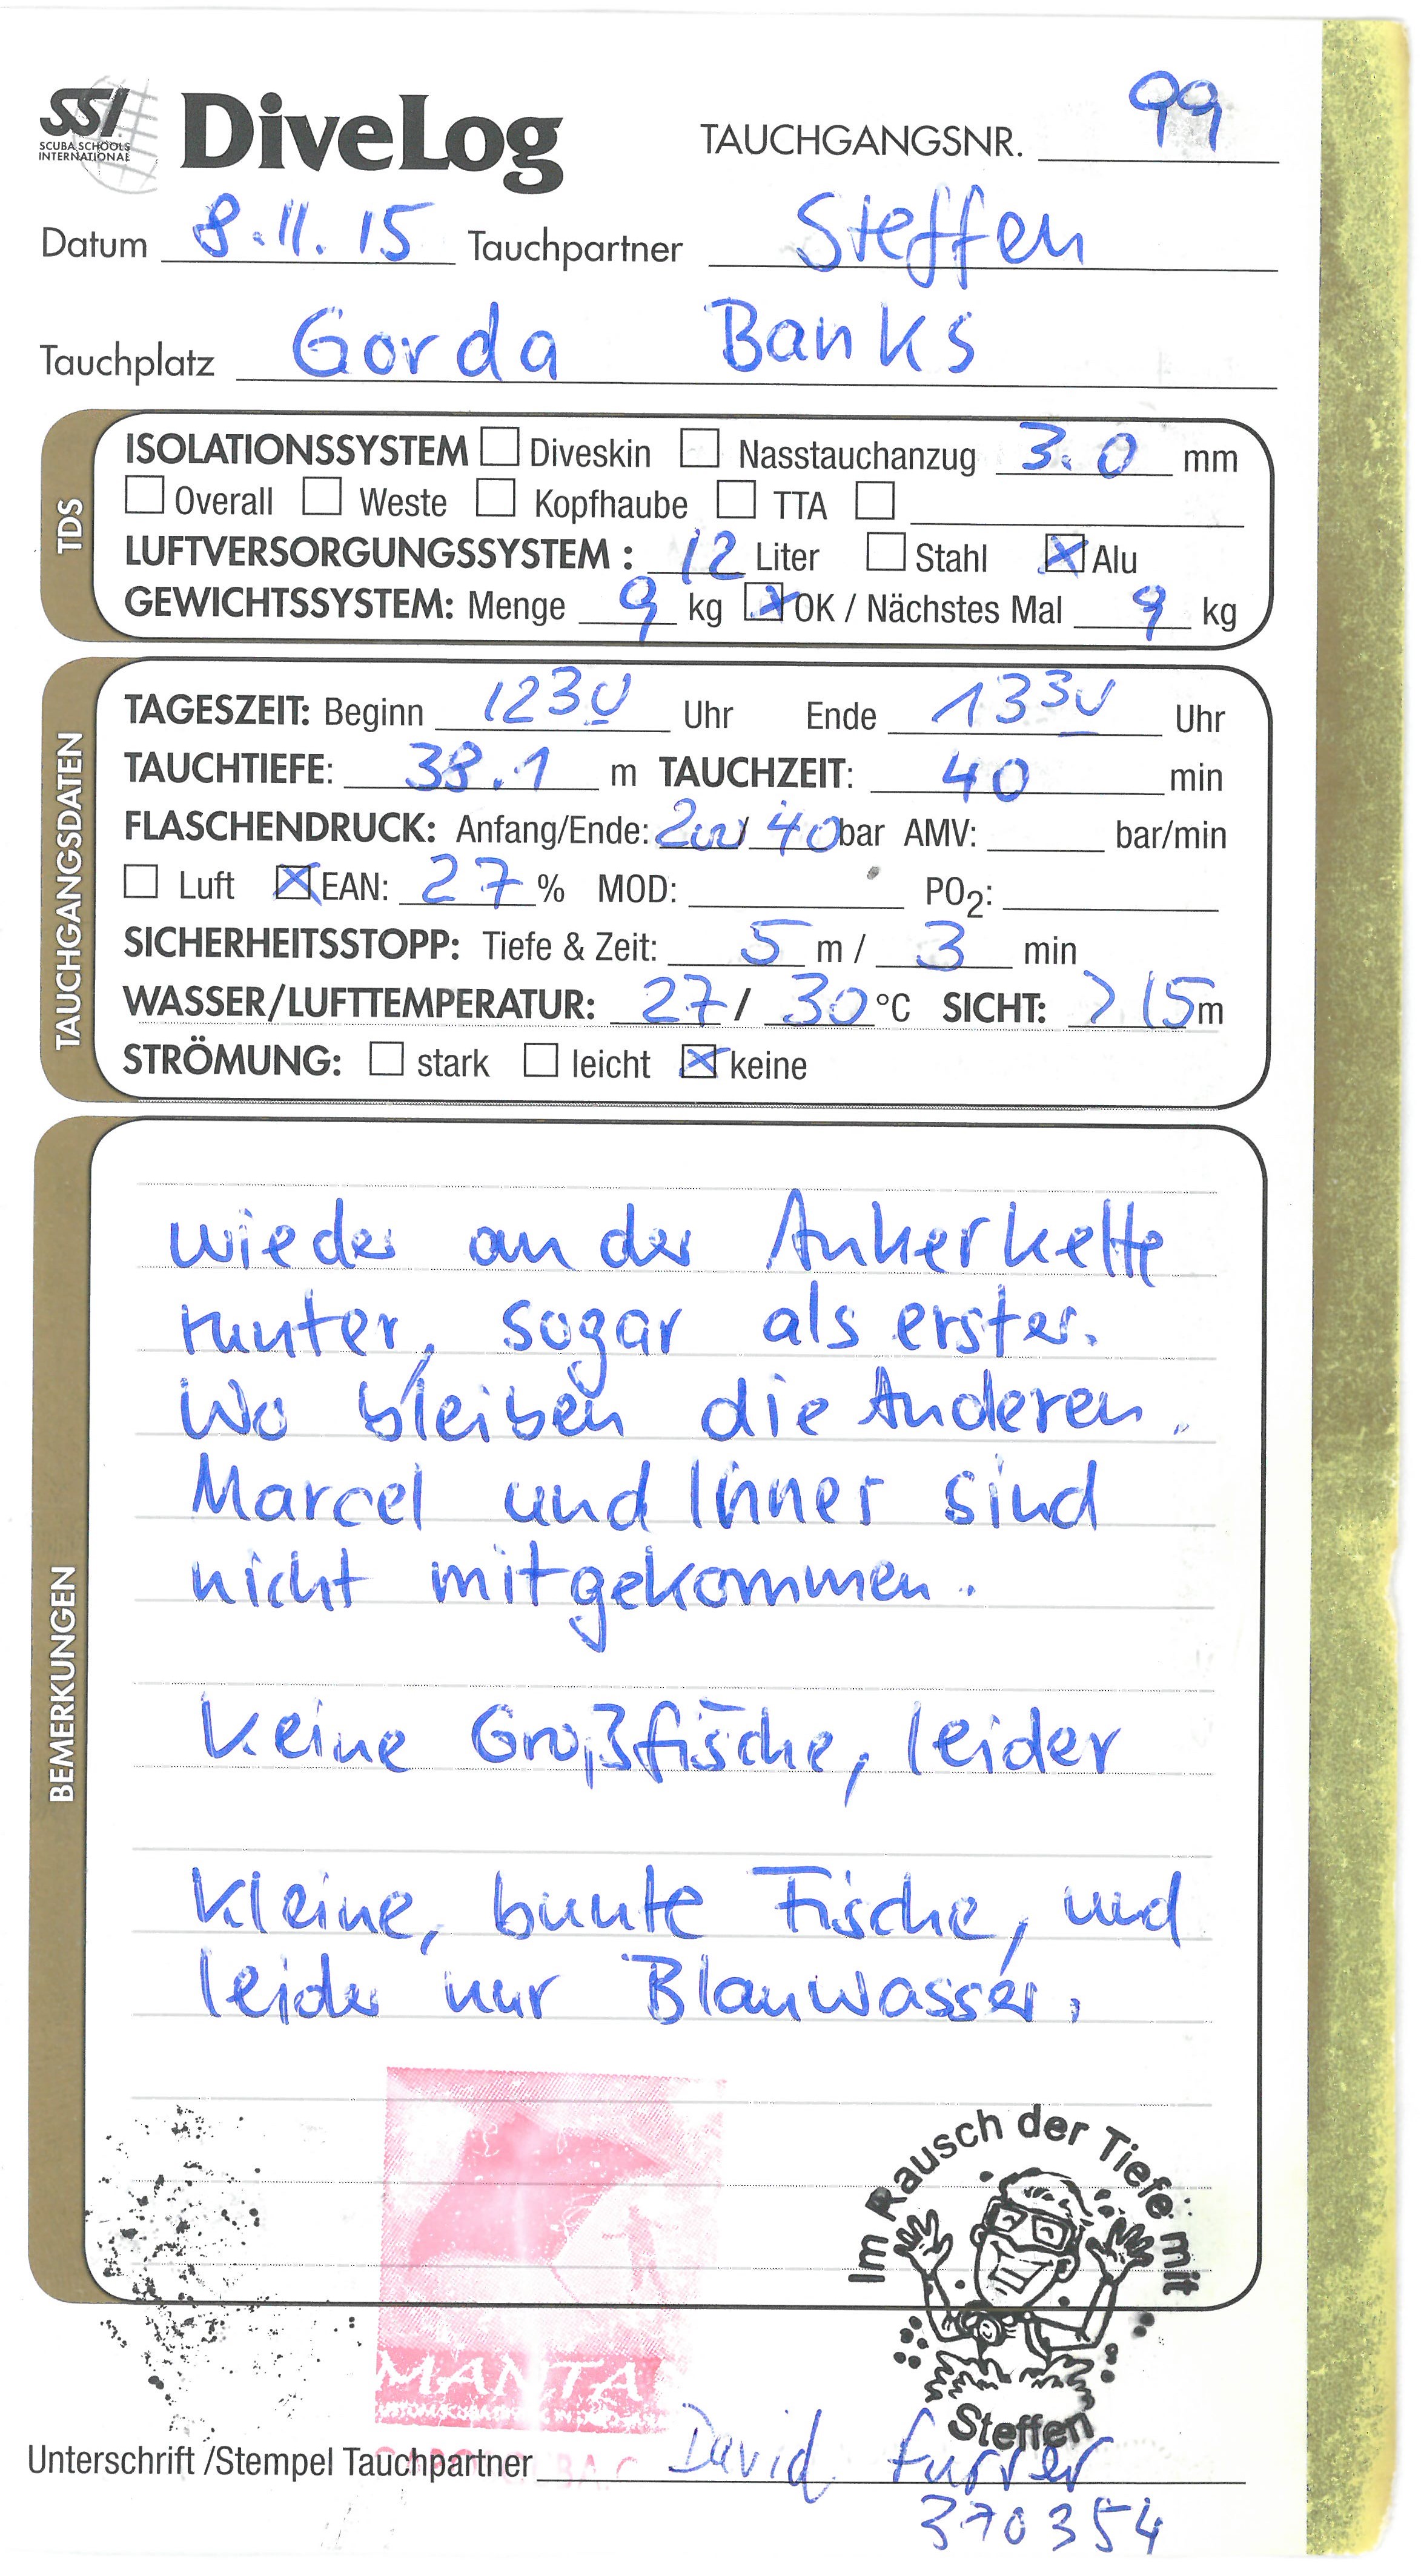 SSI
SCUBA SCHOOLS
INTERNATIONAL
DiveLog
TAUCHGANGSNR. 99
Datum 8.11.15 Tauchpartner Steffen
Tauchplatz Gorda Banks
TDS
ISOLATIONSSYSTEM ☐ Diveskin ☐ Nasstauchanzug 3.0 mm
☐ Overall ☐ Weste ☐ Kopfhaube ☐ TTA ☐
LUFTVERSORGUNGSSYSTEM : 12 Liter ☐ Stahl ☒ Alu
GEWICHTSSYSTEM: Menge 9 kg ☒ OK / Nächstes Mal 9 kg
TAUCHGANGSDATEN
TAGESZEIT: Beginn 1230 Uhr Ende 1330 Uhr
TAUCHTIEFE: 38.1 m TAUCHZEIT: 40 min
FLASCHENDRUCK: Anfang/Ende: 200/ 40 bar AMV: bar/min
☐ Luft ☒ EAN: 27 % MOD: PO2:
SICHERHEITSSTOPP: Tiefe & Zeit: 5 m / 3 min
WASSER/LUFTTEMPERATUR: 27 / 30 °C SICHT: > 15 m
STRÖMUNG: ☐ stark ☐ leicht ☒ keine
BEMERKUNGEN
wieder an der Ankerkette
runter, sogar als erster.
Wo bleiben die Anderen.
Marcel und Inner sind
nicht mitgekommen.
Keine Großfische, leider
Kleine, bunte Fische, und
leider nur Blauwasser.
Im Rausch der Tiefe mit
Steffen
MANTA
Unterschrift /Stempel Tauchpartner David Furrer
370354